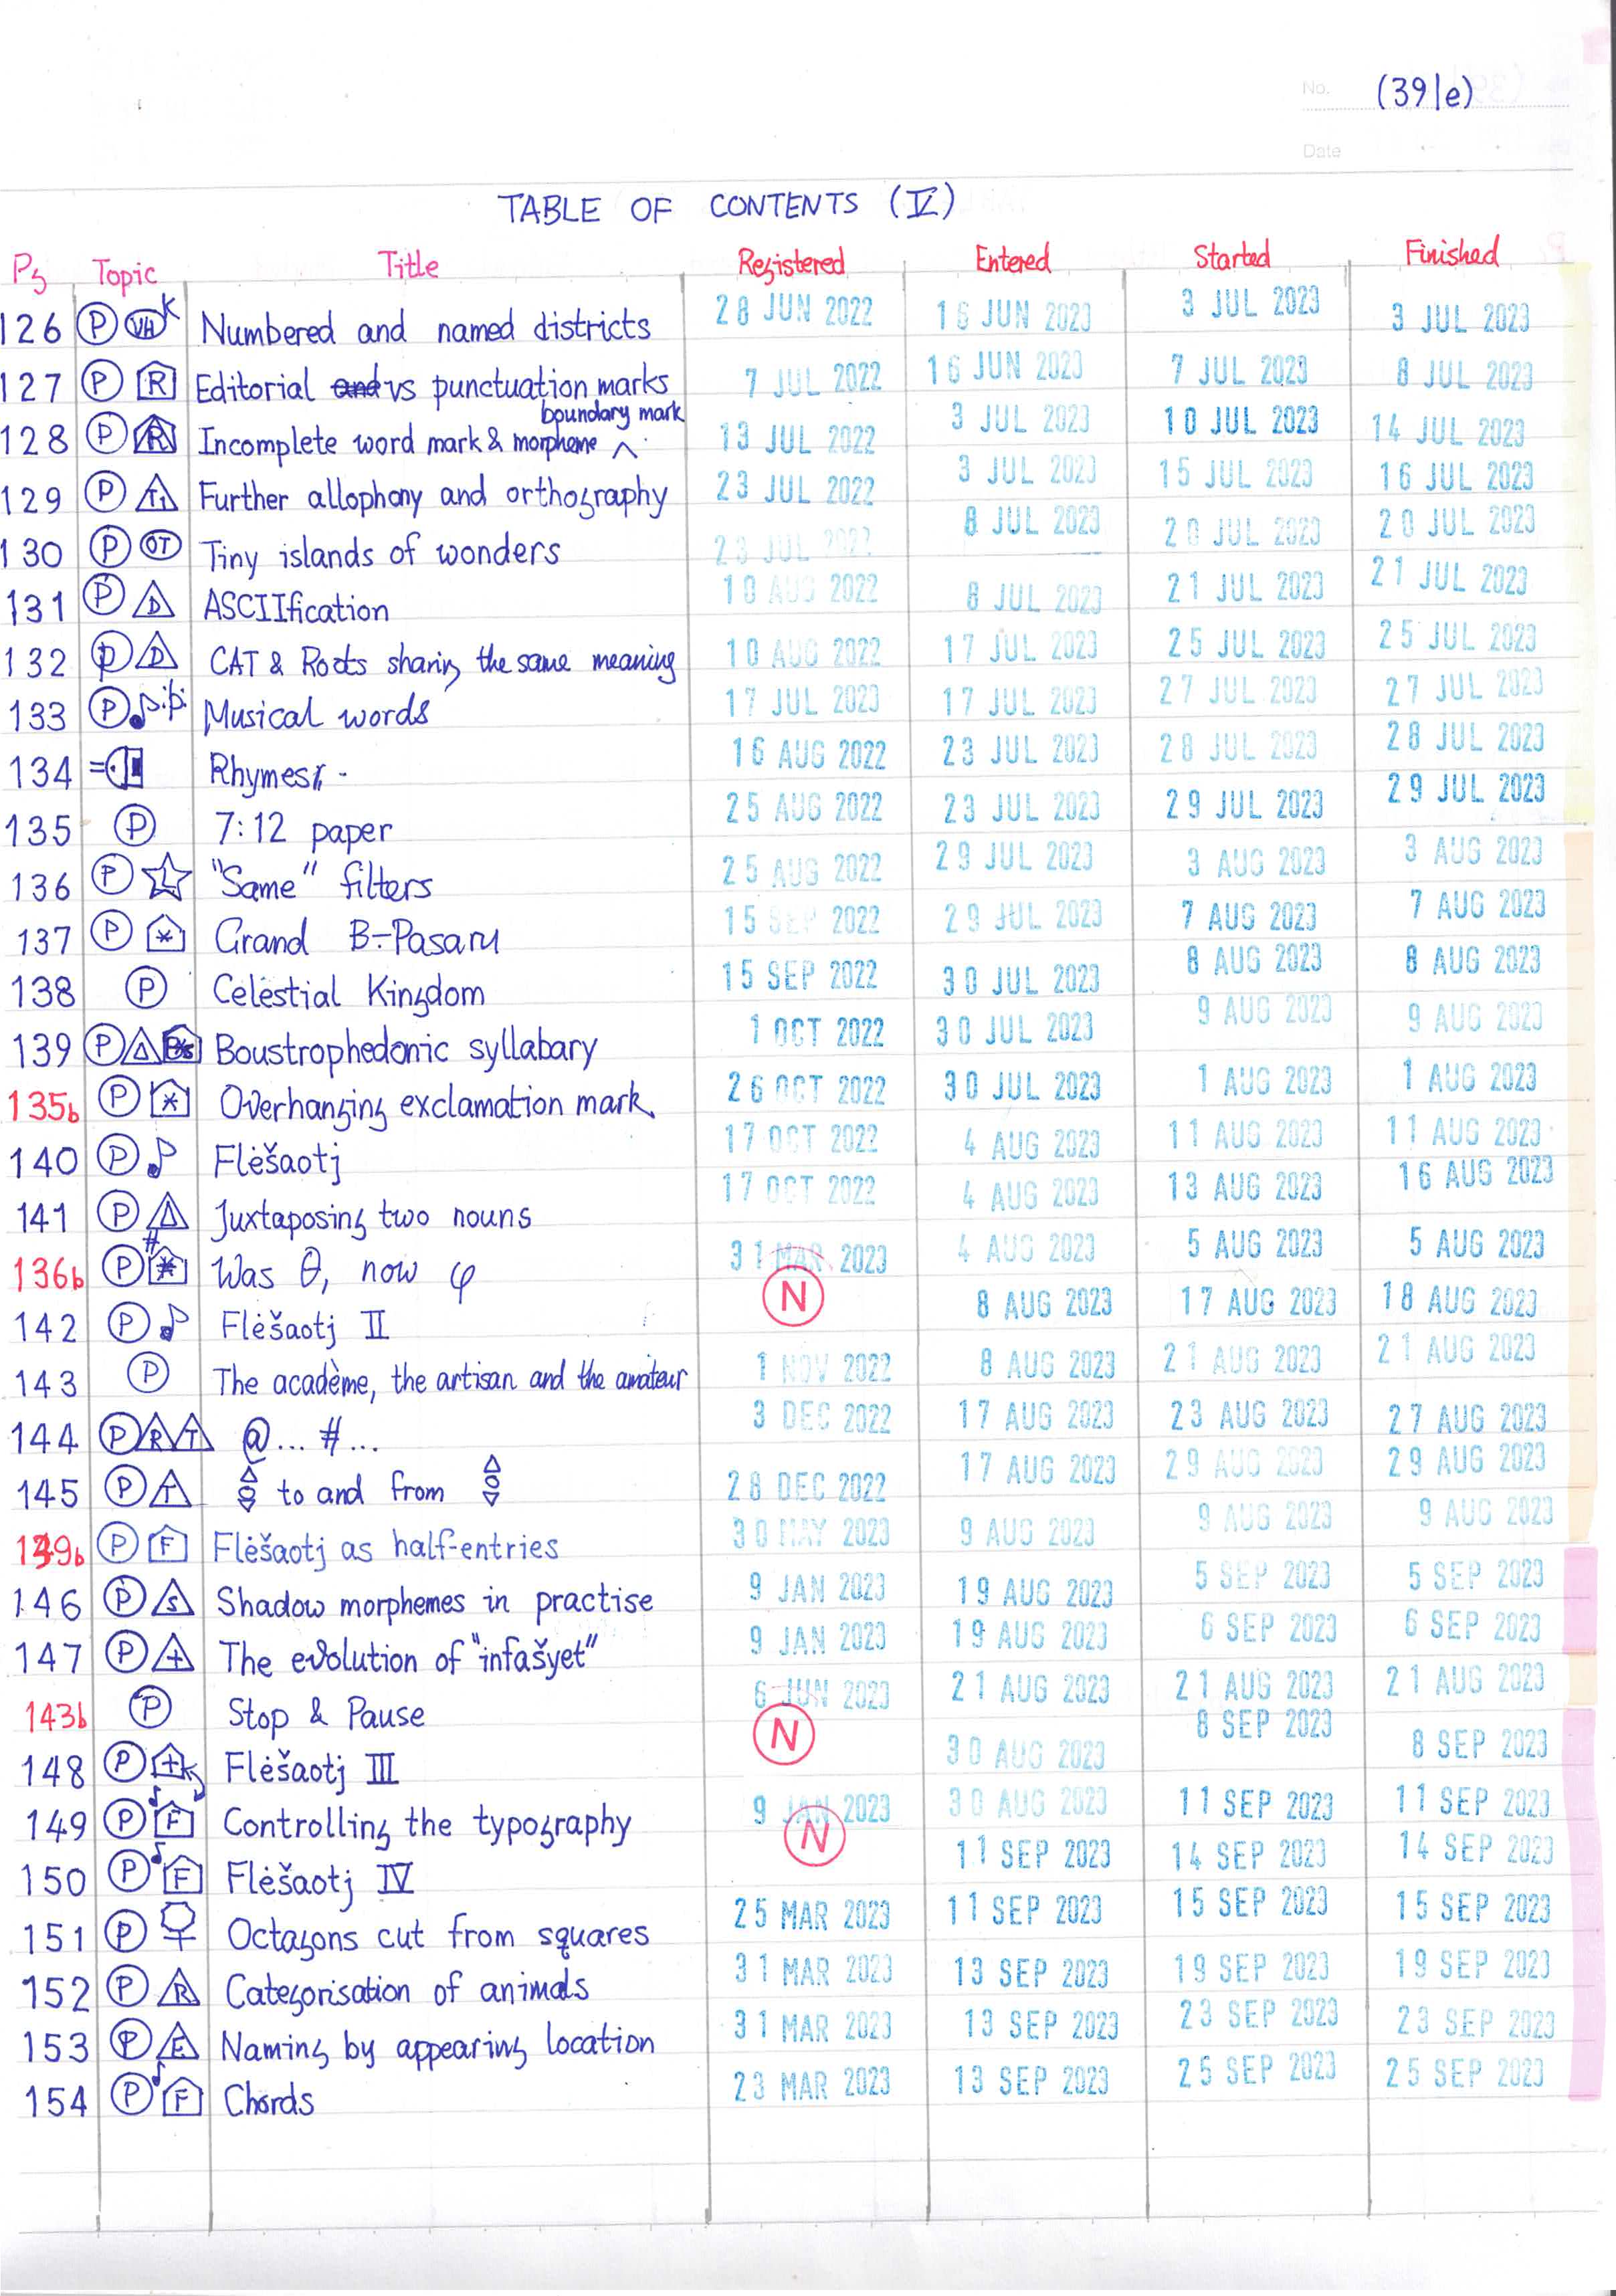 No. (39|e)
Date
TABLE OF CONTENTS (V)
Pg Topic Title Registered Entered Started Finished
126 P VH K Numbered and named districts 28 JUN 2022 16 JUN 2023 3 JUL 2023 3 JUL 2023
127 P R Editorial and vs punctuation marks 7 JUL 2022 16 JUN 2023 7 JUL 2023 8 JUL 2023
boundary mark
128 P R Incomplete word mark & morpheme ^ 13 JUL 2022 3 JUL 2023 10 JUL 2023 14 JUL 2023
129 P T1 Further allophony and orthography 23 JUL 2022 3 JUL 2023 15 JUL 2023 16 JUL 2023
130 P OT Tiny islands of wonders 23 JUL 2022 8 JUL 2023 20 JUL 2023 20 JUL 2023
131 P D ASCIIfication 10 AUG 2022 8 JUL 2023 21 JUL 2023 21 JUL 2023
132 P D CAT & Roots sharing the same meaning 10 AUG 2022 17 JUL 2023 25 JUL 2023 25 JUL 2023
133 P Musical words 17 JUL 2023 17 JUL 2023 27 JUL 2023 27 JUL 2023
134 Rhymes 16 AUG 2022 23 JUL 2023 28 JUL 2023 28 JUL 2023
135 P 7:12 paper 25 AUG 2022 23 JUL 2023 29 JUL 2023 29 JUL 2023
136 P L "Same" filters 25 AUG 2022 29 JUL 2023 3 AUG 2023 3 AUG 2023
137 P * Grand B-Pasaru 15 SEP 2022 29 JUL 2023 7 AUG 2023 7 AUG 2023
138 P Celestial Kingdom 15 SEP 2022 30 JUL 2023 8 AUG 2023 8 AUG 2023
139 P Δ Boustrophedonic syllabary 1 OCT 2022 30 JUL 2023 9 AUG 2023 9 AUG 2023
135b P * Overhanging exclamation mark 26 OCT 2022 30 JUL 2023 1 AUG 2023 1 AUG 2023
140 P Flėšaotj 17 OCT 2022 4 AUG 2023 11 AUG 2023 11 AUG 2023
141 P Δ Juxtaposing two nouns 17 OCT 2022 4 AUG 2023 13 AUG 2023 16 AUG 2023
136b P # * Was θ, now φ 31 MAR 2023 4 AUG 2023 5 AUG 2023 5 AUG 2023
142 P Flėšaotj II N 8 AUG 2023 17 AUG 2023 18 AUG 2023
143 P The acadème, the artisan and the amateur 1 NOV 2022 8 AUG 2023 21 AUG 2023 21 AUG 2023
144 P R T @... #... 3 DEC 2022 17 AUG 2023 23 AUG 2023 27 AUG 2023
145 P T to and from 28 DEC 2022 17 AUG 2023 29 AUG 2023 29 AUG 2023
139b P F Flėšaotj as half-entries 30 MAY 2023 9 AUG 2023 9 AUG 2023 9 AUG 2023
146 P S Shadow morphemes in practise 9 JAN 2023 19 AUG 2023 5 SEP 2023 5 SEP 2023
147 P + The evolution of "infašyet" 9 JAN 2023 19 AUG 2023 6 SEP 2023 6 SEP 2023
143b P Stop & Pause 6 JUN 2023 21 AUG 2023 21 AUG 2023 21 AUG 2023
148 P + Flėšaotj III N 30 AUG 2023 8 SEP 2023 8 SEP 2023
149 P F Controlling the typography 9 JAN 2023 30 AUG 2023 11 SEP 2023 11 SEP 2023
150 P F Flėšaotj IV N 11 SEP 2023 14 SEP 2023 14 SEP 2023
151 P Octagons cut from squares 25 MAR 2023 11 SEP 2023 15 SEP 2023 15 SEP 2023
152 P R Categorisation of animals 31 MAR 2023 13 SEP 2023 19 SEP 2023 19 SEP 2023
153 P E Naming by appearing location 31 MAR 2023 13 SEP 2023 23 SEP 2023 23 SEP 2023
154 P F Chords 23 MAR 2023 13 SEP 2023 25 SEP 2023 25 SEP 2023